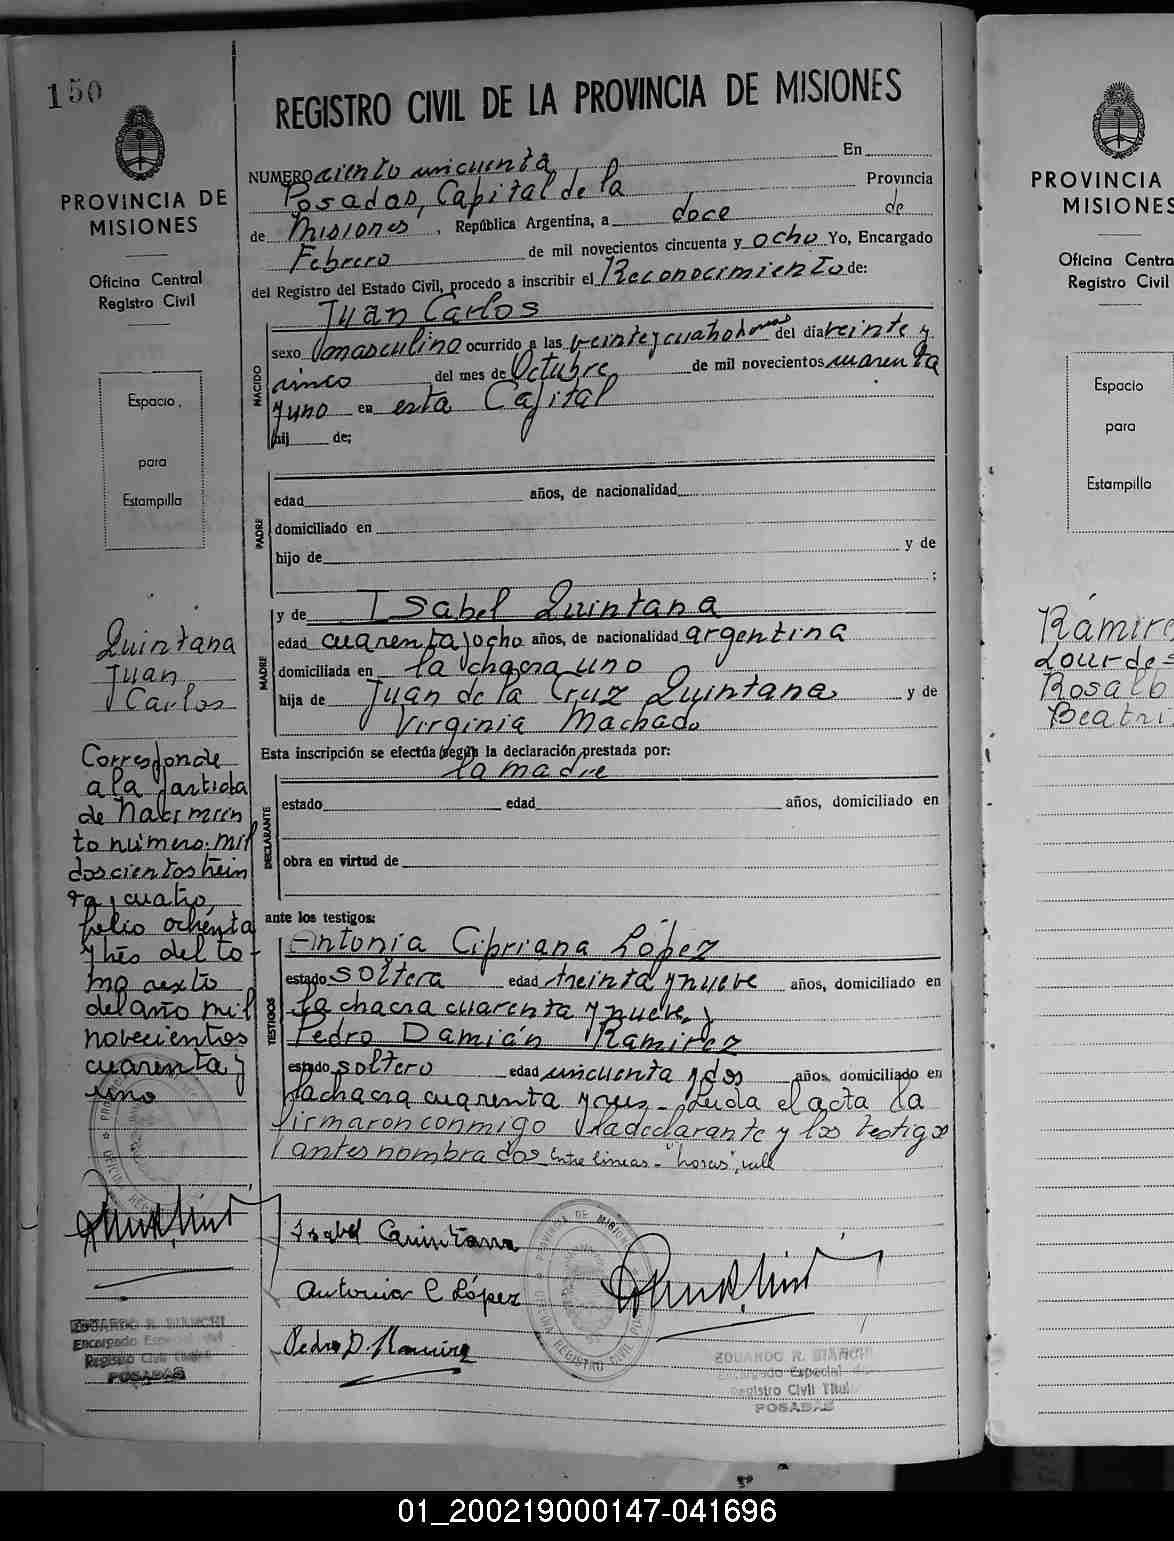 150
PROVINCIA DE
MISIONES
Oficina Central
Registro Civil
Espacio
para
Estampilla
Quintana
Juan
Carlos
Corresponde
a la partida
de Nacimien
to número: mil
doscientos trein
ta y cuatro,
folio ochenta
y tres del to-
mo sexto
del año mil
novecientos
cuarenta y
uno
EDUARDO R. BIANCHI
Encargado Especial del
Registro Civil Titular
POSADAS
REGISTRO CIVIL DE LA PROVINCIA DE MISIONES
NUMERO ciento cincuenta En
Posadas, Capital de la Provincia
de Misiones, República Argentina, a doce de
Febrero de mil novecientos cincuenta y ocho Yo, Encargado
del Registro del Estado Civil, procedo a inscribir el Reconocimiento de:
Juan Carlos
NACIDO
sexo masculino ocurrido a las veinte y cuatro horas del dia veinte y
cinco del mes de Octubre de mil novecientos cuarenta
y uno en esta Capital
hij de;
PADRE
edad años, de nacionalidad
domiciliado en
hijo de y de
;
MADRE
y de Isabel Quintana
edad cuarenta y ocho años, de nacionalidad argentina
domiciliada en la chacra uno
hija de Juan de la Cruz Quintana y de
Virginia Machado
Esta inscripción se efectúa según la declaración prestada por:
la madre
DECLARANTE
estado edad años, domiciliado en
obra en virtud de
ante los testigos:
TESTIGOS
Antonia Cipriana López
estado soltera edad treinta y nueve años, domiciliado en
la chacra cuarenta y nueve, y
Pedro Damián Ramirez
estado soltero edad cincuenta y dos años, domiciliado en
la chacra cuarenta y seis- Leida el acta la
firmaron conmigo la declarante y los testigos
antes nombrados Entre lineas- "horas", vale
Isabel Quintana
Antonia C López
Pedro D. Ramirez
PROVINCIA DE MISIONES
OFICINA REGISTRO CIVIL
EDUARDO R. BIANCHI
Encargado Especial del
Registro Civil Titular
POSADAS
PROVINCIA
MISIONES
Oficina Centra
Registro Civil
Espacio
para
Estampilla
Ramire
Lourdes
Rosalb
Beatri
01_200219000147-041696